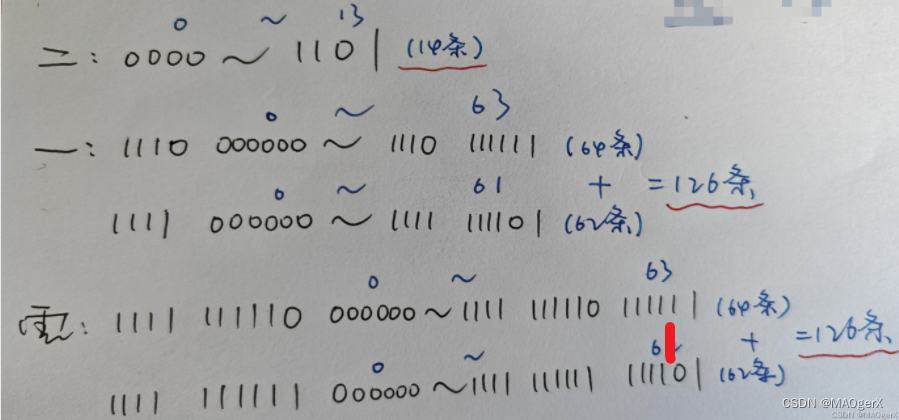 0 ~ 13
二: 0000 ~ 1101 (14条)
0 ~ 63
一: 1110 000000 ~ 1110 111111 (64条)
0 ~ 61 + =126条
1111 000000 ~ 1111 111101 (62条)
0 ~ 63
零: 1111 111110 000000 ~ 1111 111110 111111 (64条)
0 ~ 6 + =126条
1111 111111 000000 ~ 1111 111111 111101 (62条)
CSDN @MAOgerX